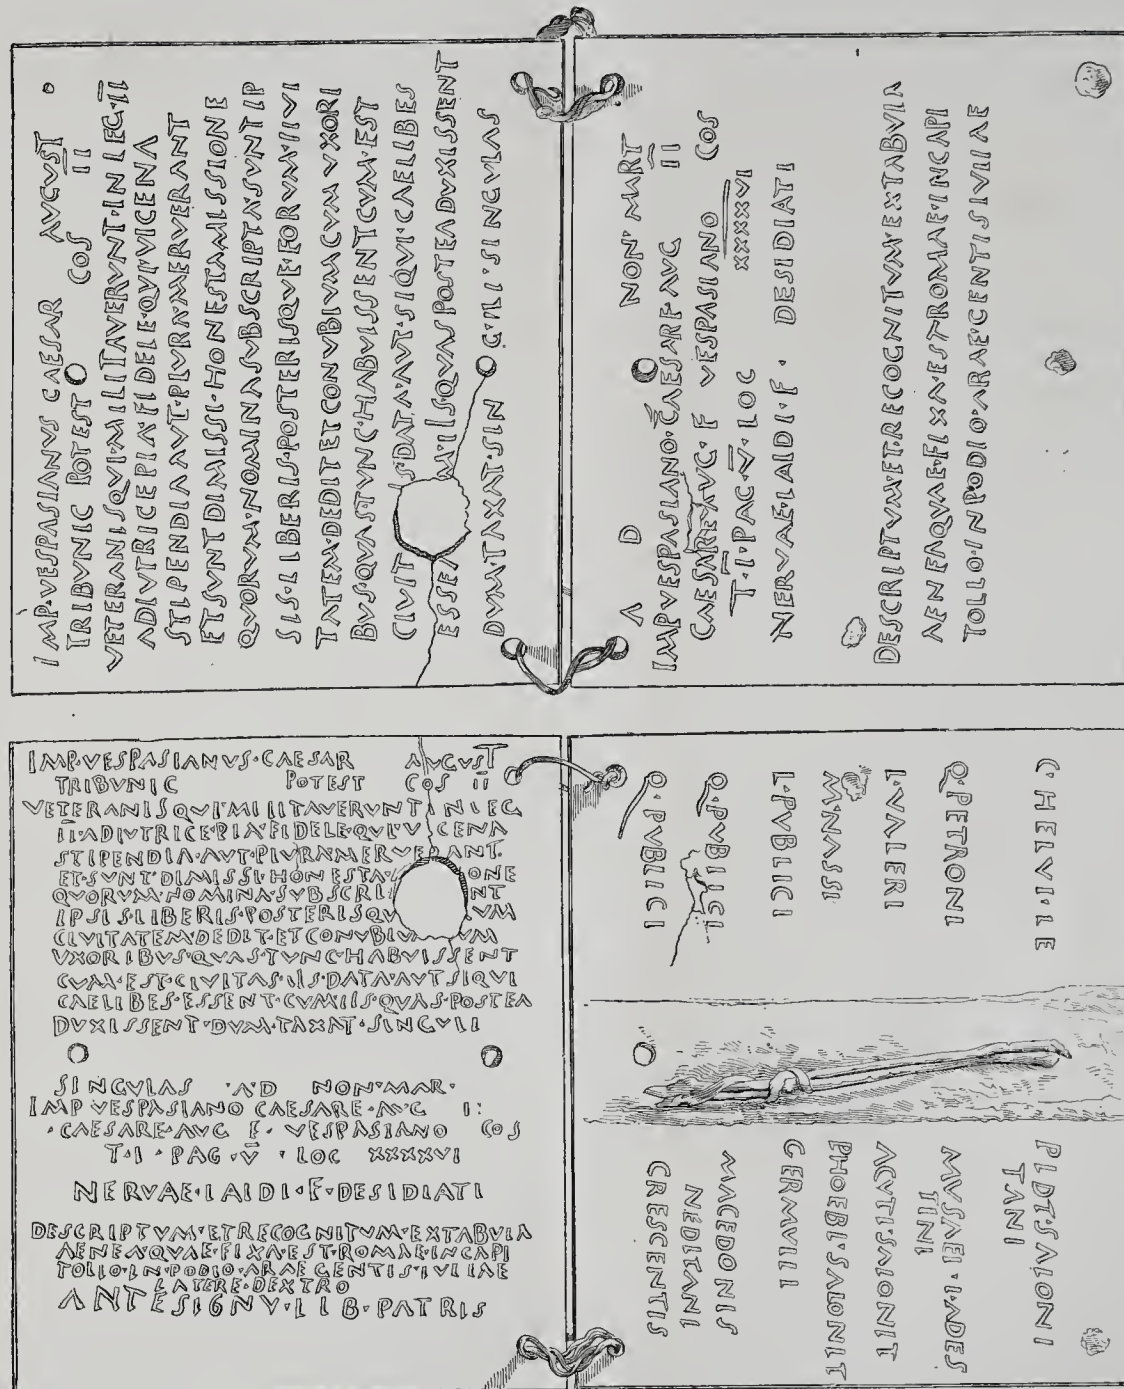 IMP·VESPASIANVS CAESAR AVGVST
TRIBVNIC POTEST COS II
VETERANISQVI·MILITAVERVNT·IN LEG·II
ADIVTRICE PIA·FIDELE·QVI·VICENA
STIPENDIA AVT·PLVRA·MERVERANT
ET SVNT DIMISSI·HONESTAMISSIONE
QVORVM·NOMINA·SVBSCRIPTA·SVNT IP
SIS·LIBERIS·POSTERISQVE·FORVM·IIVI
TATEM·DEDIT ET CONVBIVM·ACVM VXORI
BVS·QVAS·TVNC·HABVISSENT CVM·EST
CIVIT S·DATA·AVT·SIQVI·CAELIBES
ESSE M·IISQVAS POSTEADVXISSENT
DVM·TAXAT·SIN GVLI·SINGVLAS
A D NON·MART
IMP VESPASIANO·CAESARE·AVG II
CAESARE·AVG·F VESPASIANO COS
T·I·PAG·V·LOC XXXXVI
NERVAE·LAIDI·F· DESIDIATI
DESCRIPTVM·ET·RECOGNITVM·EXTABVIA
AENEAQVAE·FIXA·EST ROMAE·INCAPI
TOLIO·IN PODIO·ARAE·GENTIS IVIIAE
IMP·VESPASIANVS·CAESAR AVGVST
TRIBVNIC POTEST COS II
VETERANISQVI·MILITAVERVNT IN LEG
II·ADIVTRICE·PIA·FIDELE·QVI·V CENA
STIPENDIA·AVT·PLVRAMERVERANT
ET·SVNT·DIMISSI·HONESTA ONE
QVORVM·NOMINA·SVBSCRI NT
IPSIS·LIBERIS·POSTERISQV VM
CIVITATEM·DEDIT·ET CONVBIVM VM
VXORIBVS·QVAS·TVNC HABVISSENT
CVM·EST·CIVITAS·IIS·DATA·AVT SIQVI
CAELIBES·ESSENT·CVMIIS·QVAS·POSTEA
DVXISSENT·DVM·TAXAT·SINGVLI
SINGVLAS AD NON·MAR·
IMP VESPASIANO CAESARE·AVG I:
·CAESARE·AVG F·VESPASIANO COS
T·I·PAG·V·LOC XXXXVI
NERVAE·IAIDI·F·DESIDIATI
DESCRIPTVM·ET RECOGNITVM·EXTABVIA
AENEA·QVAE·FIXA·EST·ROMAE·INCAPI
TOLIO·IN·PODIO·ARAE GENTIS·IVLIAE
LATERE·DEXTRO
ANTE SIGNV·LIB·PATRIS
C·HELVI·LE PIDI·SAIONI
TANI
Q·PETRONI MVSAEI·IADES
TINI
L·VALERI ACVTI·SAIONIT
M·NASSI PHOEBI·SALONIT
L·PVBLICI GERMVIII
Q·PVBLICI MACEDONIS
NEDITANI
Q·PVBLICI CRESCENTIS